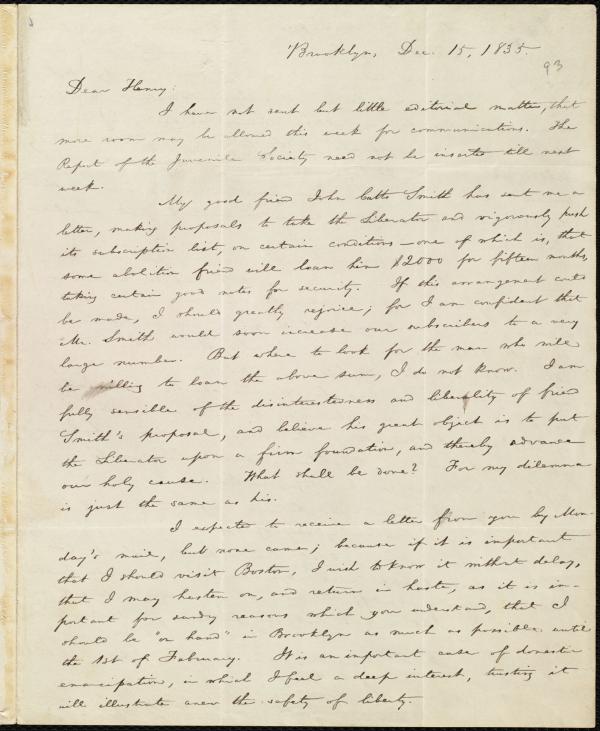 Brooklyn, Dec. 15, 1835.
93
Dear Henry:
I have not sent but little editorial matter, that
more room may be allowed this week for communications. The
Report of the Juvenile Society need not be inserted till next
week.
My good friend John Cutts Smith has sent me a
letter, making proposals to take the Liberator and vigorously push
its subscription list, on certain conditions—one of which is, that
some abolition friend will loan him $2000 for fifteen months,
taking certain good notes for security. If this arrangement could
be made, I should greatly rejoice; for I am confident that
Mr. Smith would soon increase our subscribers to a very
large number. But where to look for the man who will
be willing to loan the above sum, I do not know. I am
fully sensible of the disinterestedness and liberality of friend
Smith's proposal, and believe his great object is to put
the Liberator upon a firm foundation, and thereby advance
our holy cause. What shall be done? For my dilemma
is just the same as his.
I expected to receive a letter from you by Mon-
day's mail, but none came; because if it is important
that I should visit Boston, I wish to know it without delay,
that I may hasten on, and return in haste, as it is im-
portant for sundry reasons which you understand, that I
should be "on hand" in Brooklyn as much as possible until
the 1st of February. It is an important case of domestic
emancipation, in which I feel a deep interest, trusting it
will illustrate anew the safety of liberty.